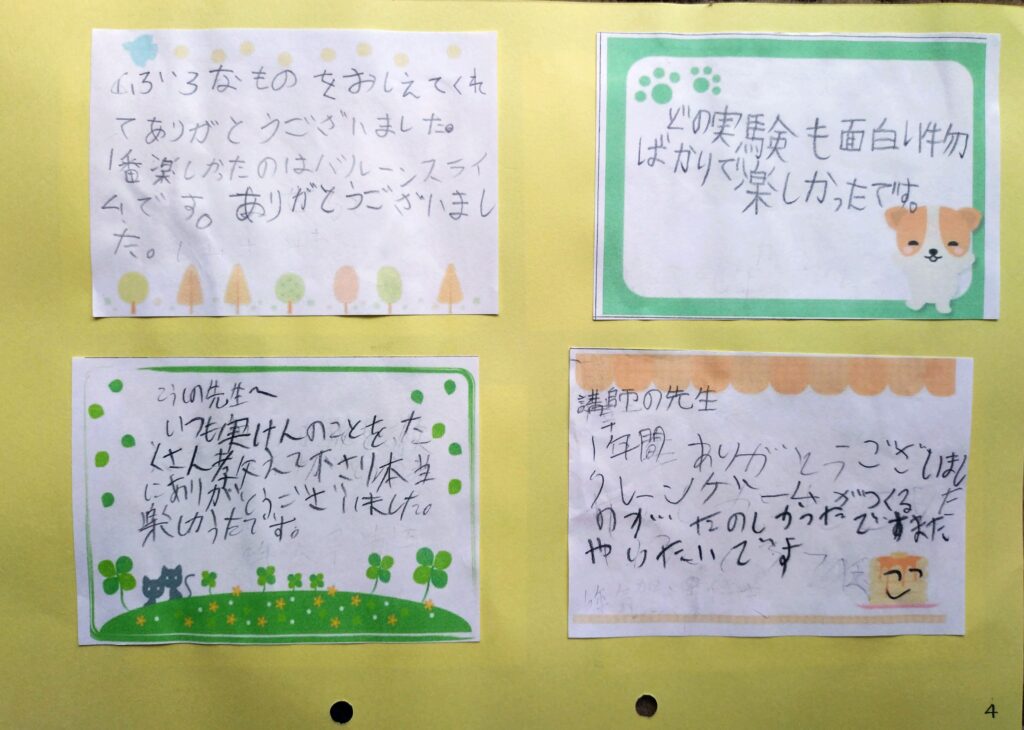 いろいろなものをおしえてくれ
てありがとうございました。
1番楽しかったのはバルーンスライ
ムです。ありがとうございまし
た。
どの実験も面白い物
ばかりで楽しかったです。
こうしの先生へ
いつも実けんのことをた
くさん教えて下さり本当
にありがとうございました。
楽しかったです。
講師の先生
1年間ありがとうございました
クレーンゲームがつくる
のが たのしかったですまた
やりたいです
4